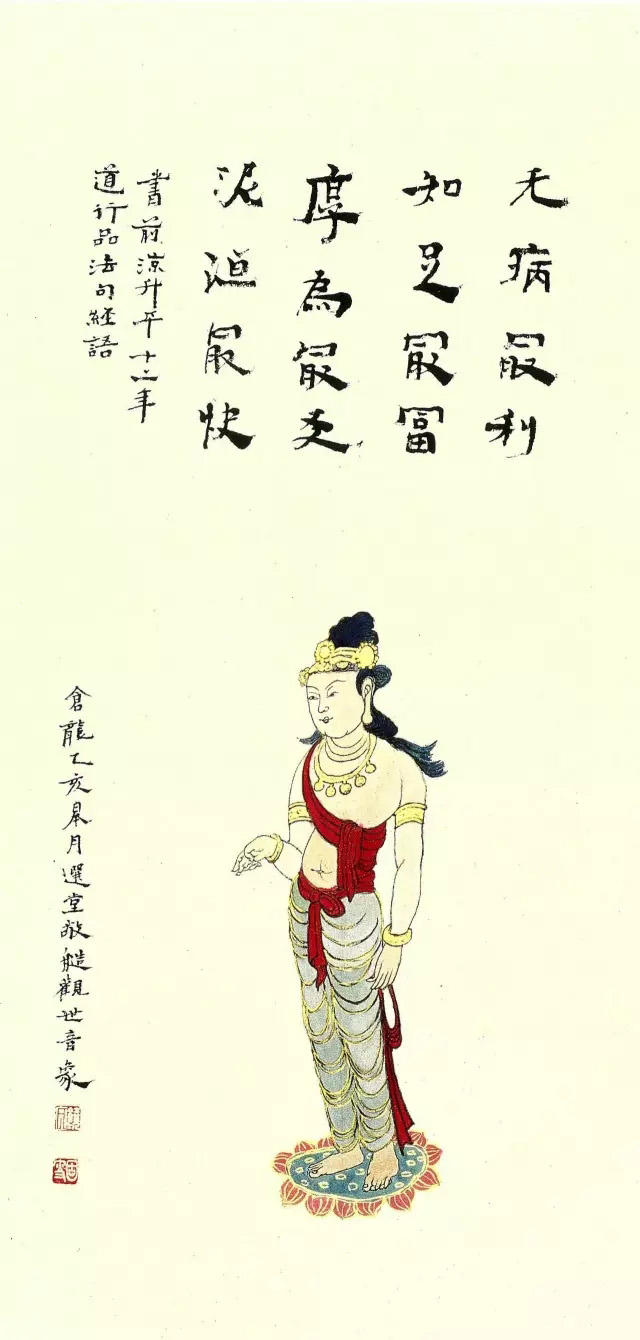 无病最利
知足最富
厚為最友
泥洹最快
書前涼升平十二年
道行品法句經語
倉龍乙亥皋月選堂敬艁觀世音象